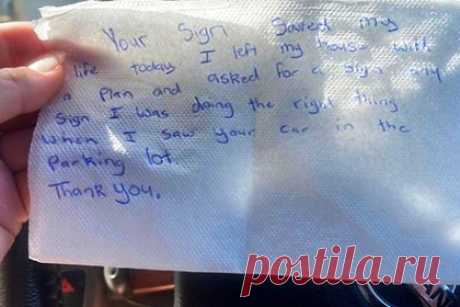 Your Sign Saved my
life today I left my house with
a plan and asked for a sign any
sign I was doing the right thing
when I saw your car in the
Parking lot.
Thank you.
postila.ru